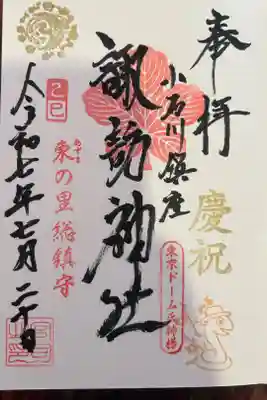 奉拝
慶祝
小石川鎮座
諏訪神社
東京ドーム氏神様
東の里総鎮守
令和七年七月二十日